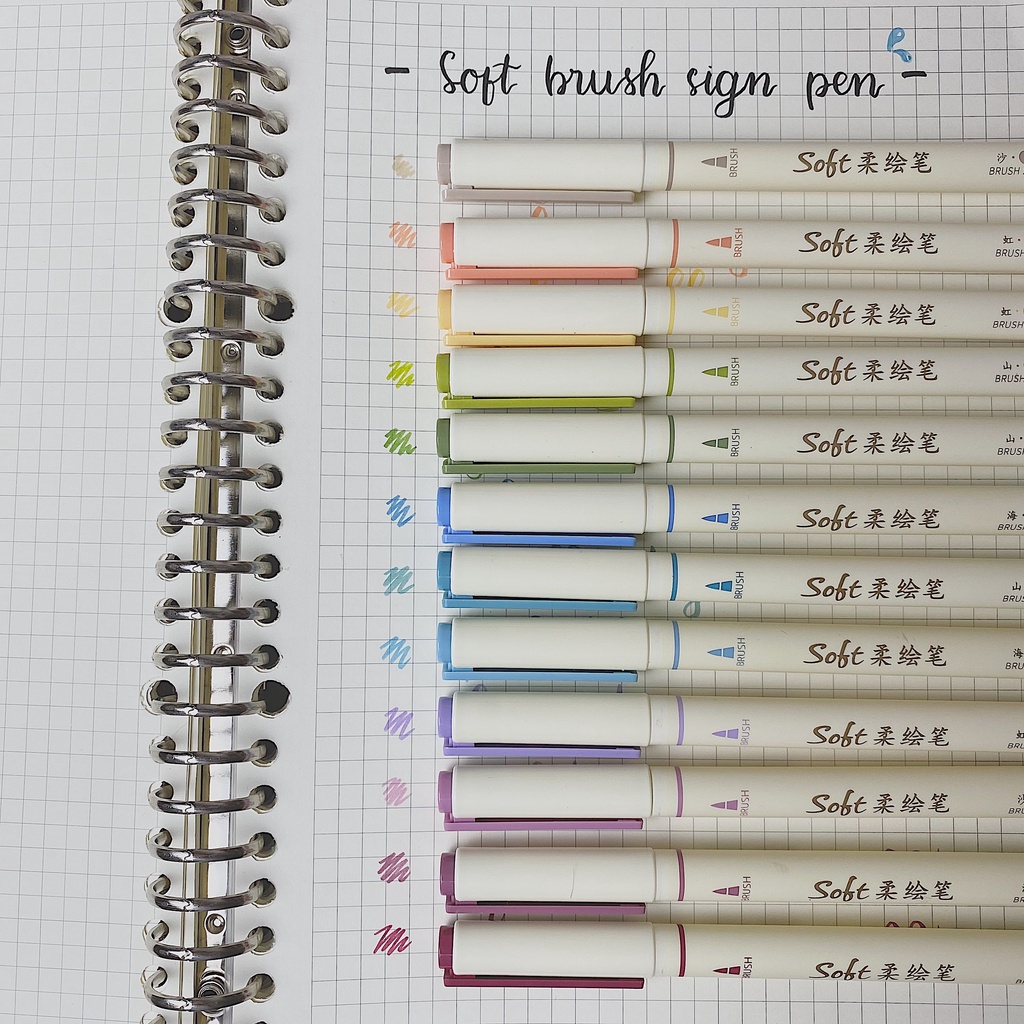 - Soft brush sign pen -
BRUSH Soft 柔绘笔 沙·
BRUSH
BRUSH Soft 柔绘笔 虹·
BRUSH
BRUSH Soft 柔绘笔 虹·
BRUSH
BRUSH Soft 柔绘笔 山·
BRUSH
BRUSH Soft 柔绘笔 山·
BRUSH
BRUSH Soft 柔绘笔 海·
BRUS
BRUSH Soft 柔绘笔 山
BRUS
BRUSH Soft 柔绘笔 海
BRUS
BRUSH Soft 柔绘笔 虹
BRU
BRUSH Soft 柔绘笔 沙
BRU
BRUSH Soft 柔绘笔
BRUSH Soft 柔绘笔